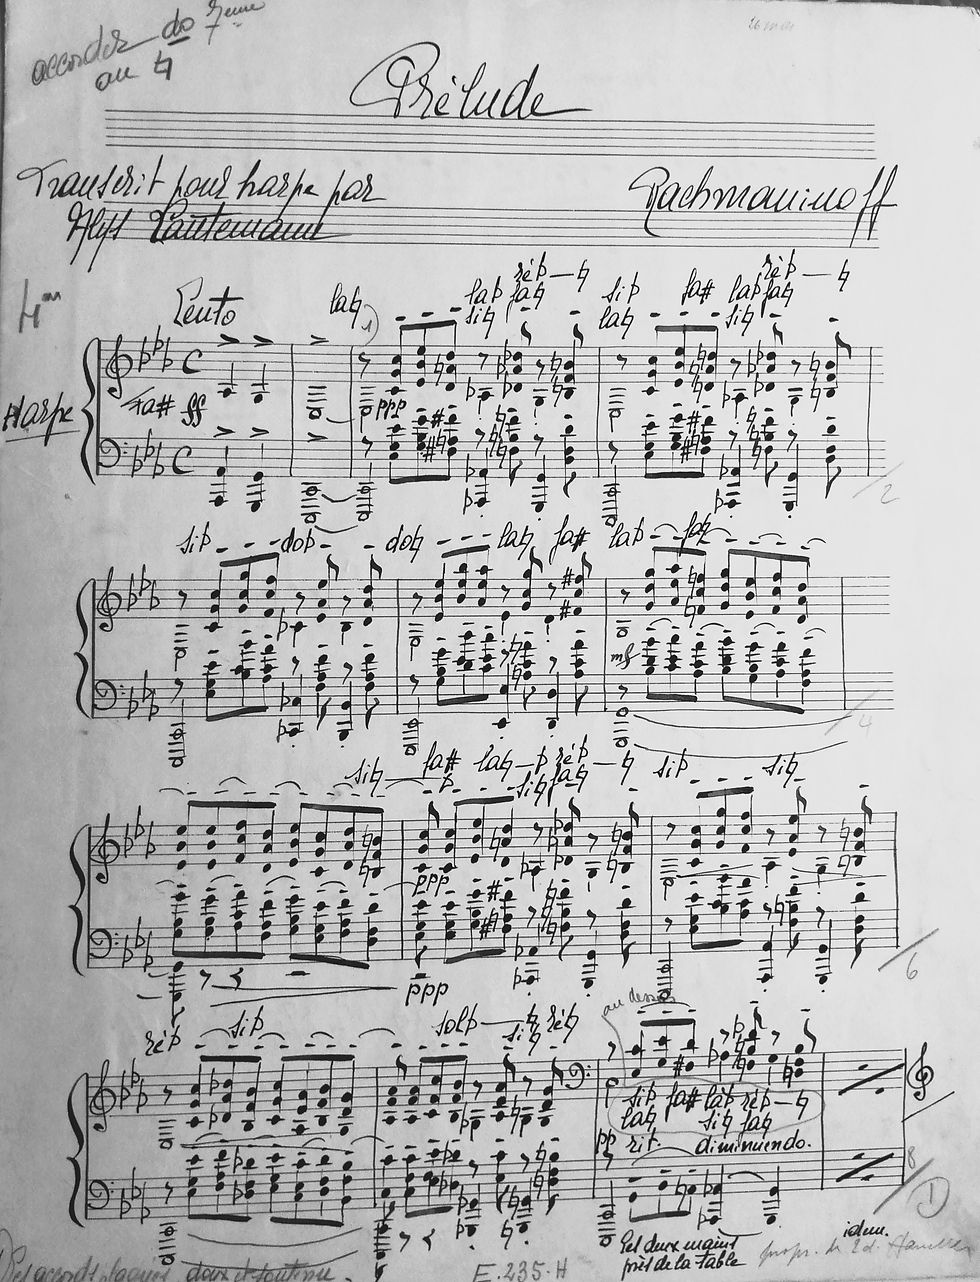 accorder do 7eme
au ♮
26 mai
Prélude
Transcrit pour harpe par
Rachmaninoff
Alys Lautemann
Lento
la♮
la♭ fa♮
ré♭ — ♮
si♮
si♭
la♮
fa#
la♭ fa♮
ré♭ — ♮
si♮
Harpe
Fa# ff
ppp
2
si♭
do♭
do♮
la♮
fa#
la♭
fa♮
mf
4
si♮
fa#
la♮ — ♭
ré♭
si♮ fa♮ — ♮
si♭
si♮
ppp
ppp
6
au dessus
ré♭
si♭
sol♭ — ♮ ré♮
si♮
si♭ fa# la♭ ré♭ — ♮
la♮ si♮ fa♮
pp rit. diminuendo.
8
1
Les deux mains
près de la table
idem.
E.235.H